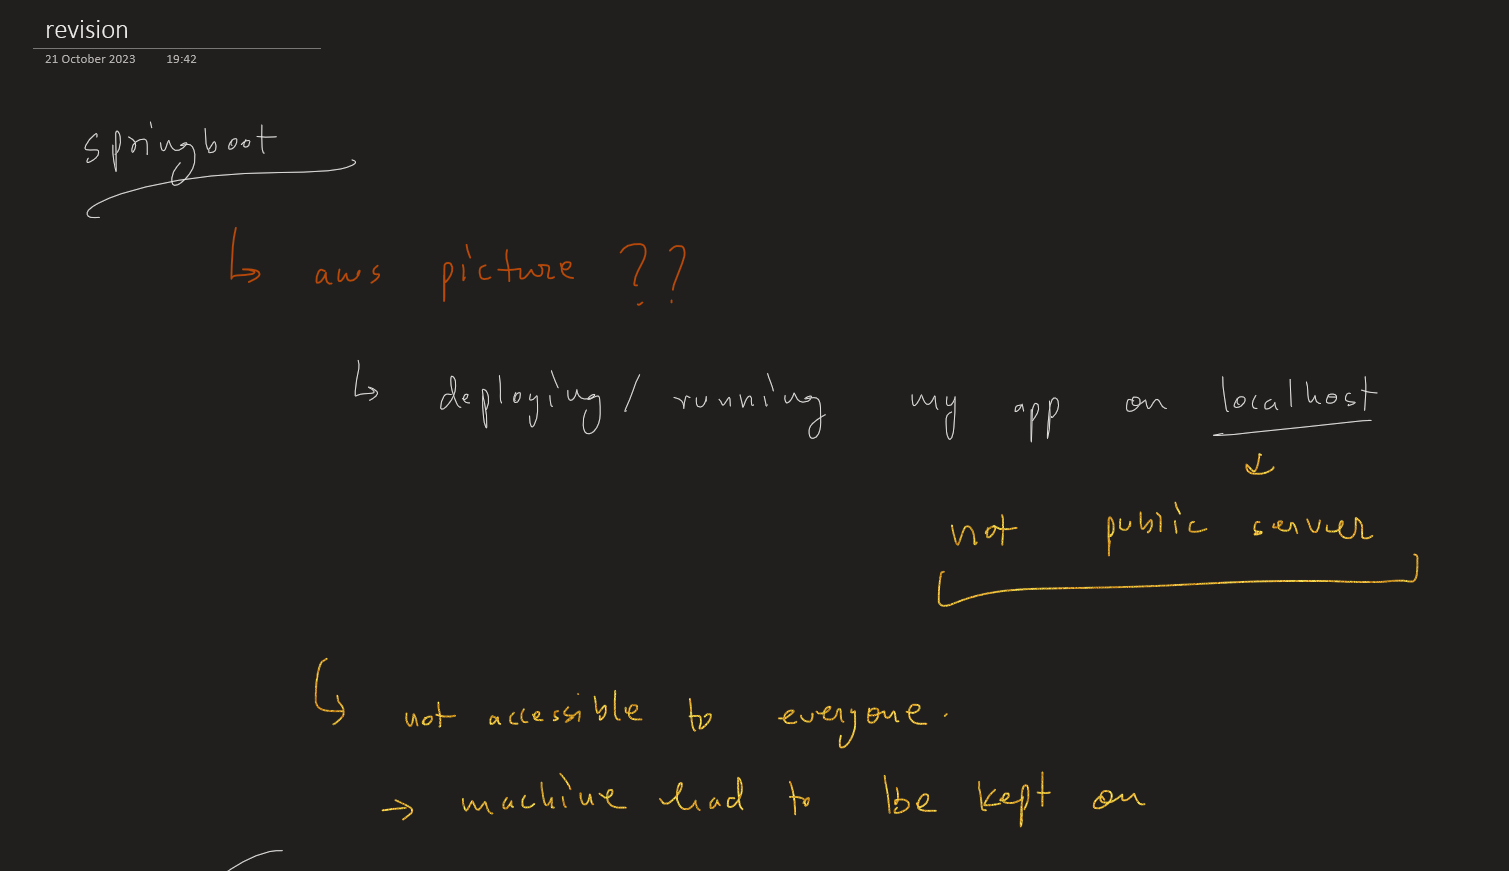 revision
21 October 2023 19:42
springboot
aws picture ??
deploying/running my app on localhost
not public server
not accessible to everyone.
machine had to be kept on